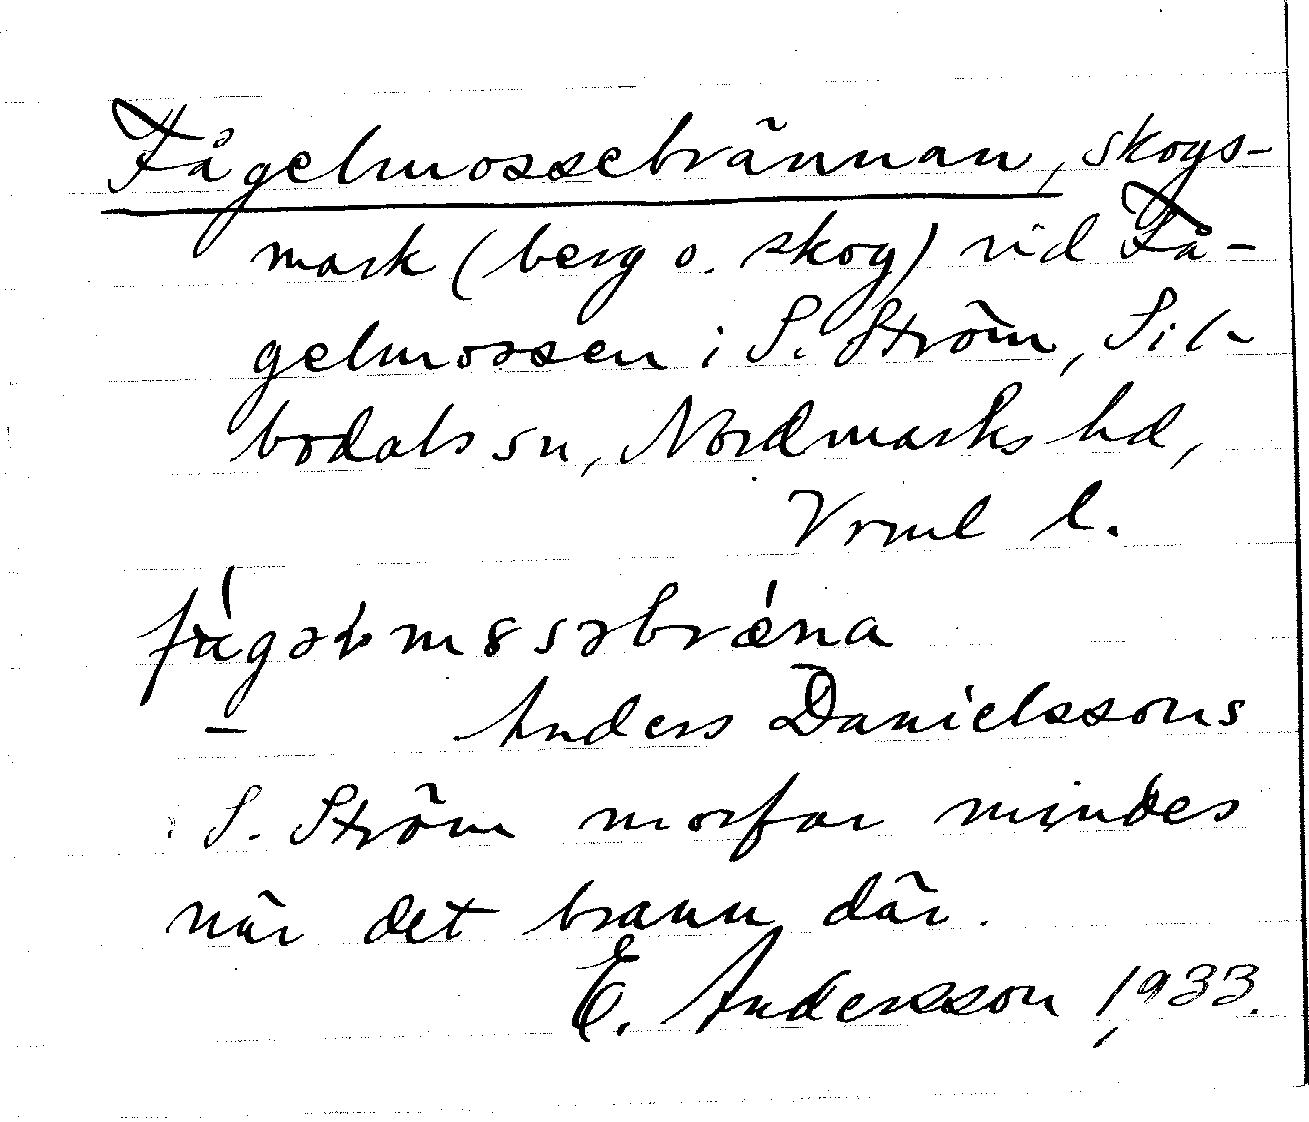 Fågelmossebrännan, skogs-
mark (berg o. skog) vid Få-
gelmossen i S. Ström, Sil-
bodals sn, Nordmarks hd,
Vrml l.
– Anders Danielssons
S. Ström morfar mindes
när det brann där.
E. Andersson 1933.